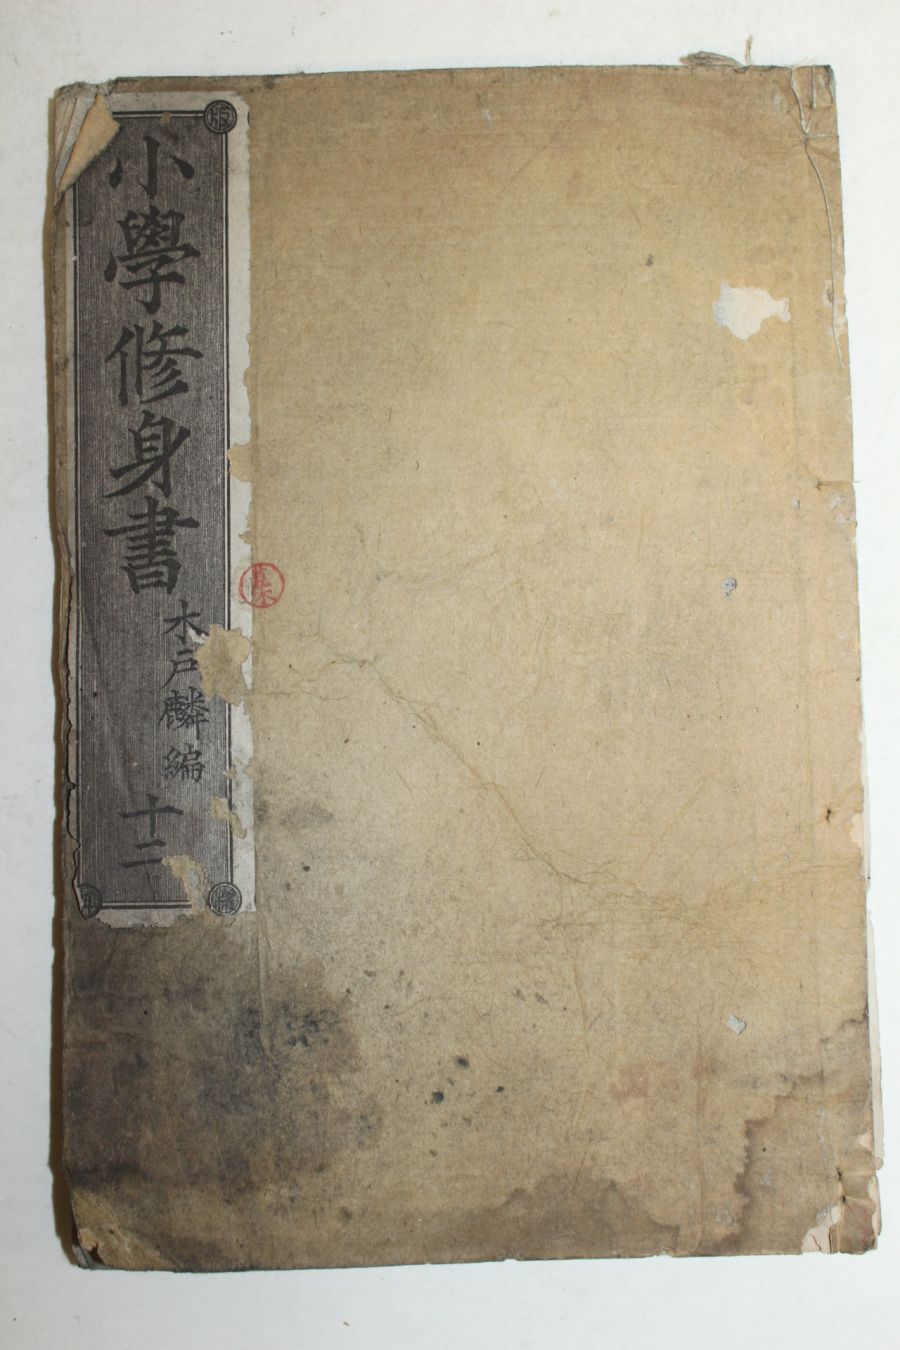 小學修身書
木戸麟編
十二
版